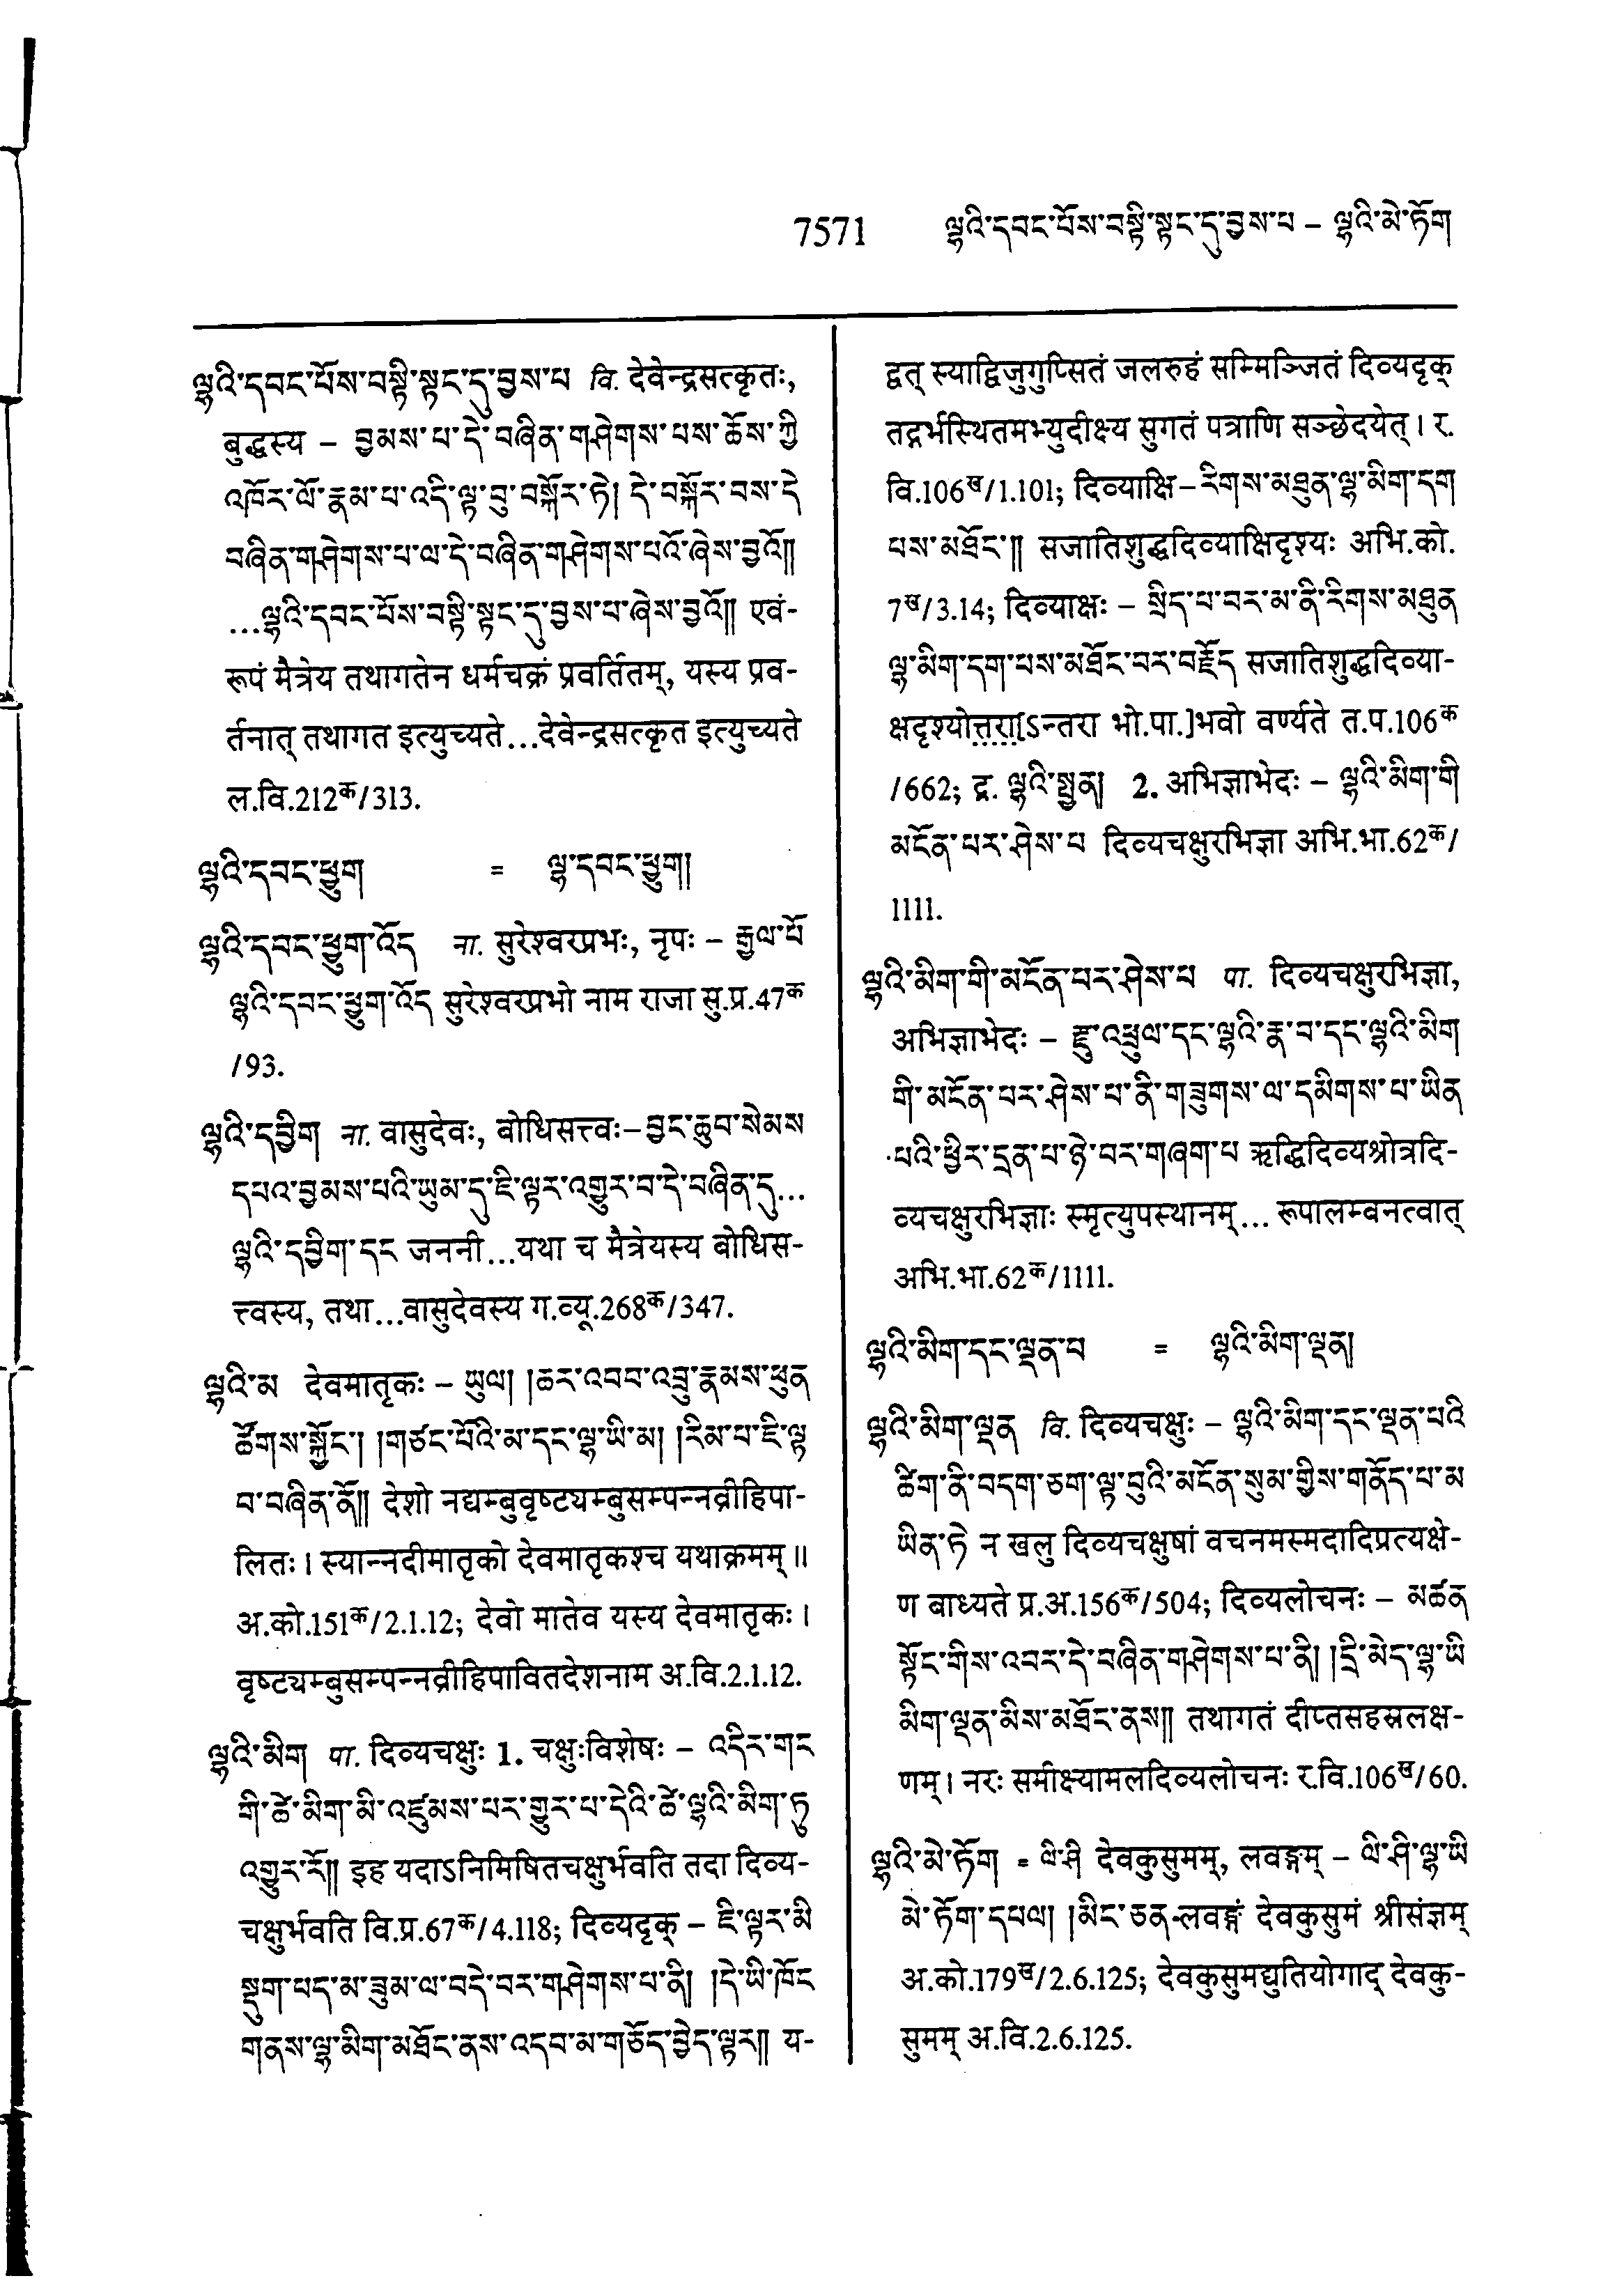 7571 ལྷའི་དབང་པོས་བསྟི་སྟང་དུ་བྱས་པ – ལྷའི་མེ་ཏོག
ལྷའི་དབང་པོས་བསྟི་སྟང་དུ་བྱས་པ वि. देवेन्द्रसत्कृतः,
बुद्धस्य – བྱམས་པ་དེ་བཞིན་གཤེགས་པས་ཆོས་ཀྱི
འཁོར་ལོ་རྣམ་པ་འདི་ལྟ་བུ་བསྐོར་ཏེ། དེ་བསྐོར་བས་དེ
བཞིན་གཤེགས་པ་ལ་དེ་བཞིན་གཤེགས་པའོ་ཞེས་བྱའོ༎
...ལྷའི་དབང་པོས་བསྟི་སྟང་དུ་བྱས་པ་ཞེས་བྱའོ༎ एवं-
रूपं मैत्रेय तथागतेन धर्मचक्रं प्रवर्तितम्, यस्य प्रव-
र्तनात् तथागत इत्युच्यते...देवेन्द्रसत्कृत इत्युच्यते
ल.वि.212क/313.
ལྷའི་དབང་ཕྱུག = ལྷ་དབང་ཕྱུག།
ལྷའི་དབང་ཕྱུག་འོད ना. सुरेश्वरप्रभः, नृपः – རྒྱལ་པོ
ལྷའི་དབང་ཕྱུག་འོད सुरेश्वरप्रभो नाम राजा सु.प्र.47क
/93.
ལྷའི་དབྱིག ना. वासुदेवः, बोधिसत्त्वः– བྱང་ཆུབ་སེམས
དཔའ་བྱམས་པའི་ཡུམ་དུ་ཇི་ལྟར་འགྱུར་བ་དེ་བཞིན་དུ...
ལྷའི་དབྱིག་དང जननी...यथा च मैत्रेयस्य बोधिस-
त्त्वस्य, तथा...वासुदेवस्य ग.व्यू.268क/347.
ལྷའི་མ देवमातृकः – ཡུལ། །ཆར་འབབ་འབྲུ་རྣམས་ཕུན
ཚོགས་སྐྱོང་། །གཙང་པོའི་མ་དང་ལྷ་ཡི་མ། །རིམ་པ་ཇི་ལྟ
བ་བཞིན་ནོ༎ देशो नद्यम्बुवृष्ट्यम्बुसम्पन्नव्रीहिपा-
लितः। स्यान्नदीमातृको देवमातृकश्च यथाक्रमम्॥
अ.को.151क/2.1.12; देवो मातेव यस्य देवमातृकः।
वृष्ट्यम्बुसम्पन्नव्रीहिपावितदेशनाम अ.वि.2.1.12.
ལྷའི་མིག पा. दिव्यचक्षुः 1. चक्षुःविशेषः – འདིར་གང
གི་ཚེ་མིག་མི་འཛུམས་པར་གྱུར་པ་དེའི་ཚེ་ལྷའི་མིག་ཏུ
འགྱུར་རོ༎ इह यदाऽनिमिषितचक्षुर्भवति तदा दिव्य-
चक्षुर्भवति वि.प्र.67क/4.118; दिव्यदृक् – ཇི་ལྟར་མི
སྡུག་པད་མ་ཟུམ་ལ་བདེ་བར་གཤེགས་པ་ནི། །དེ་ཡི་ཁོང
གནས་ལྷ་མིག་མཐོང་ནས་འདབ་མ་གཅོད་བྱེད་ལྟར༎ य-
द्वत् स्याद्विजुगुप्सितं जलरुहं सम्मिञ्जितं दिव्यदृक्
तद्गर्भस्थितमभ्युदीक्ष्य सुगतं पत्राणि सञ्छेदयेत्। र.
वि.106ख/1.101; दिव्याक्षि – རིགས་མཐུན་ལྷ་མིག་དག
པས་མཐོང་༎ सजातिशुद्धदिव्याक्षिदृश्यः अभि.को.
7ख/3.14; दिव्याक्षः – སྲིད་པ་བར་མ་ནི་རིགས་མཐུན
ལྷ་མིག་དག་པས་མཐོང་བར་བརྗོད सजातिशुद्धदिव्या-
क्षदृश्योत्तरा[ऽन्तरा भो.पा.]भवो वर्ण्यते त.प.106क
/662; द्र. ལྷའི་སྤྱན། 2. अभिज्ञाभेदः – ལྷའི་མིག་གི
མངོན་པར་ཤེས་པ दिव्यचक्षुरभिज्ञा अभि.भा.62क/
1111.
ལྷའི་མིག་གི་མངོན་པར་ཤེས་པ पा. दिव्यचक्षुरभिज्ञा,
अभिज्ञाभेदः – རྫུ་འཕྲུལ་དང་ལྷའི་རྣ་བ་དང་ལྷའི་མིག
གི་མངོན་པར་ཤེས་པ་ནི་གཟུགས་ལ་དམིགས་པ་ཡིན
པའི་ཕྱིར་དྲན་པ་ཉེ་བར་གཞག་པ ऋद्धिदिव्यश्रोत्रदि-
व्यचक्षुरभिज्ञाः स्मृत्युपस्थानम्... रूपालम्बनत्वात्
अभि.भा.62क/1111.
ལྷའི་མིག་དང་ལྡན་པ = ལྷའི་མིག་ལྡན།
ལྷའི་མིག་ལྡན वि. दिव्यचक्षुः – ལྷའི་མིག་དང་ལྡན་པའི
ཚིག་ནི་བདག་ཅག་ལྟ་བུའི་མངོན་སུམ་གྱིས་གནོད་པ་མ
ཡིན་ཏེ न खलु दिव्यचक्षुषां वचनमस्मदादिप्रत्यक्षे-
ण बाध्यते प्र.अ.156क/504; दिव्यलोचनः – མཚན
སྟོང་གིས་འབར་དེ་བཞིན་གཤེགས་པ་ནི། །དྲི་མེད་ལྷ་ཡི
མིག་ལྡན་མིས་མཐོང་ནས༎ तथागतं दीप्तसहस्रलक्ष-
णम्। नरः समीक्ष्यामलदिव्यलोचनः र.वि.106ख/60.
ལྷའི་མེ་ཏོག = ལི་ཤི देवकुसुमम्, लवङ्गम् – ལི་ཤི་ལྷ་ཡི
མེ་ཏོག་དཔལ། །མིང་ཅན– लवङ्गं देवकुसुमं श्रीसंज्ञम्
अ.को.179ख/2.6.125; देवकुसुमद्युतियोगाद् देवकु-
सुमम् अ.वि.2.6.125.